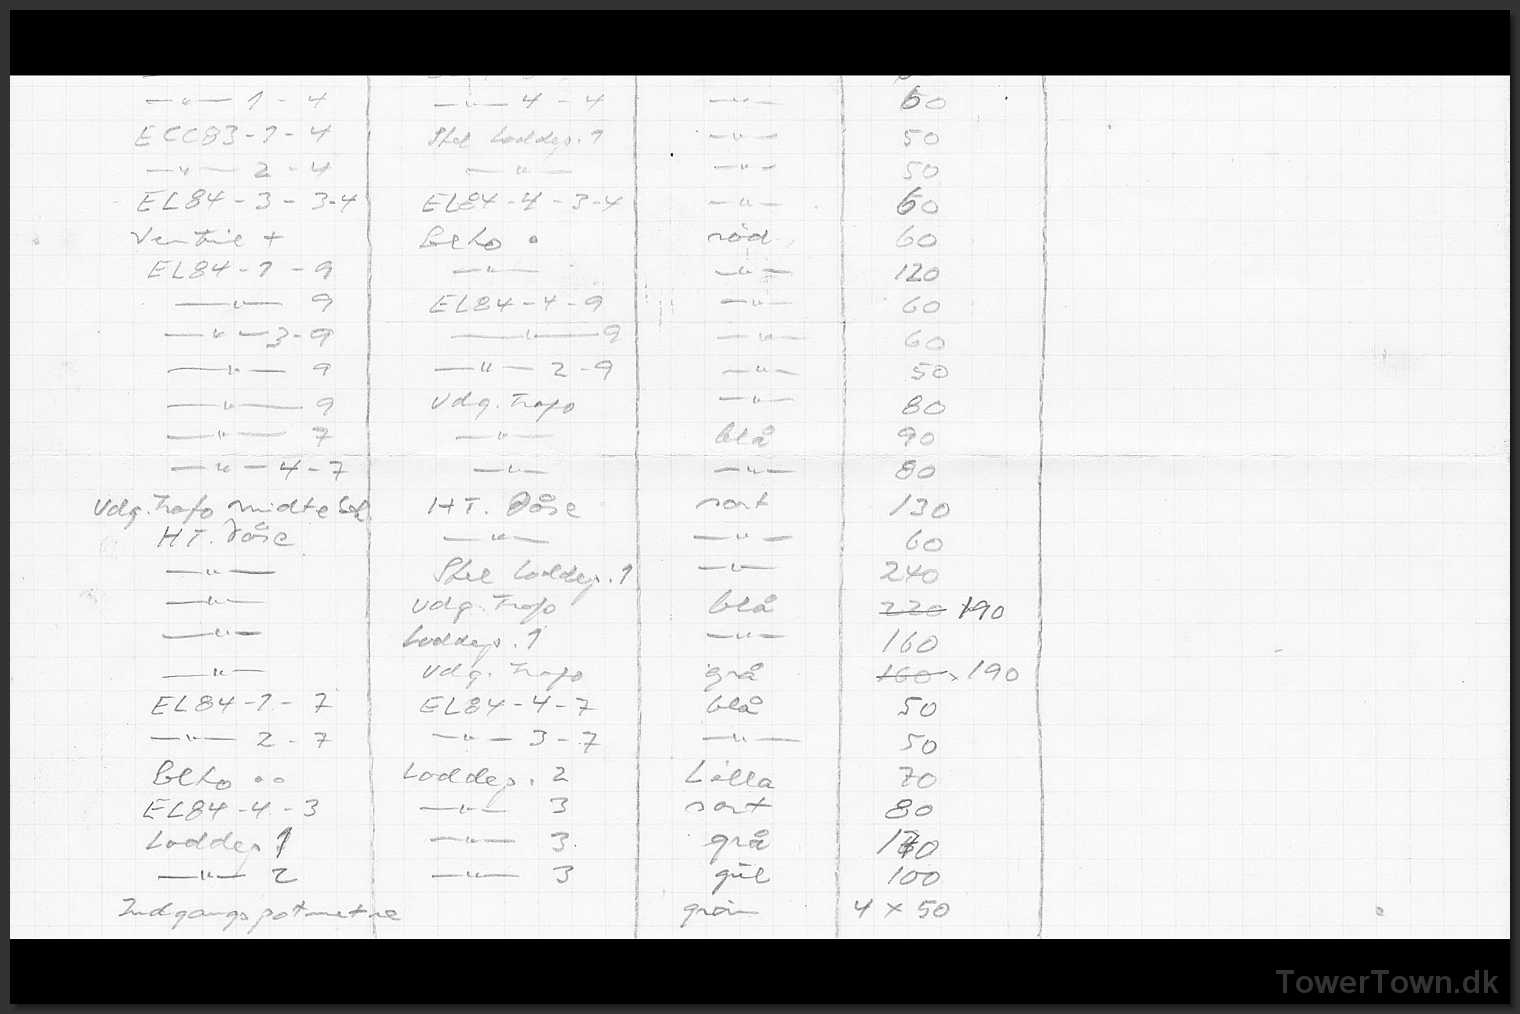 —"— 1 - 4 —"— 4 - 4 —"— 60
ECC83-1-4 Stel Loddep. 1 —"— 50
—"— 2 - 4 —"— —"— 50
EL84-3-3-4 EL84-4-3-4 —"— 60
Ventil + Belho o röd 60
EL84-1-9 —"— —"— 120
—"— 9 EL84-4-9 —"— 60
—"— 3-9 —"— 9 —"— 60
—"— 9 —"— 2-9 —"— 50
—"— 9 Udg. Trafo —"— 80
—"— 7 —"— blå 90
—"— 4-7 —"— —"— 80
Udg. Trafo midte HT. Dåse sort 130
HT. Dåse —"— —"— 60
—"— Stel Loddep. 1 —"— 240
—"— Udg. Trafo blå 220 190
—"— Loddep. 1 —"— 160
—"— Udg. Trafo grå 160 190
EL84-1-7 EL84-4-7 blå 50
—"— 2-7 —"— 3-7 —"— 50
Belho oo Loddep. 2 Lilla 70
EL84-4-3 —"— 3 sort 80
Loddep 1 —"— 3 grå
—"— 2 —"— 3 gül 100
Indgangspotmetre grön 4 x 50
TowerTown.dk